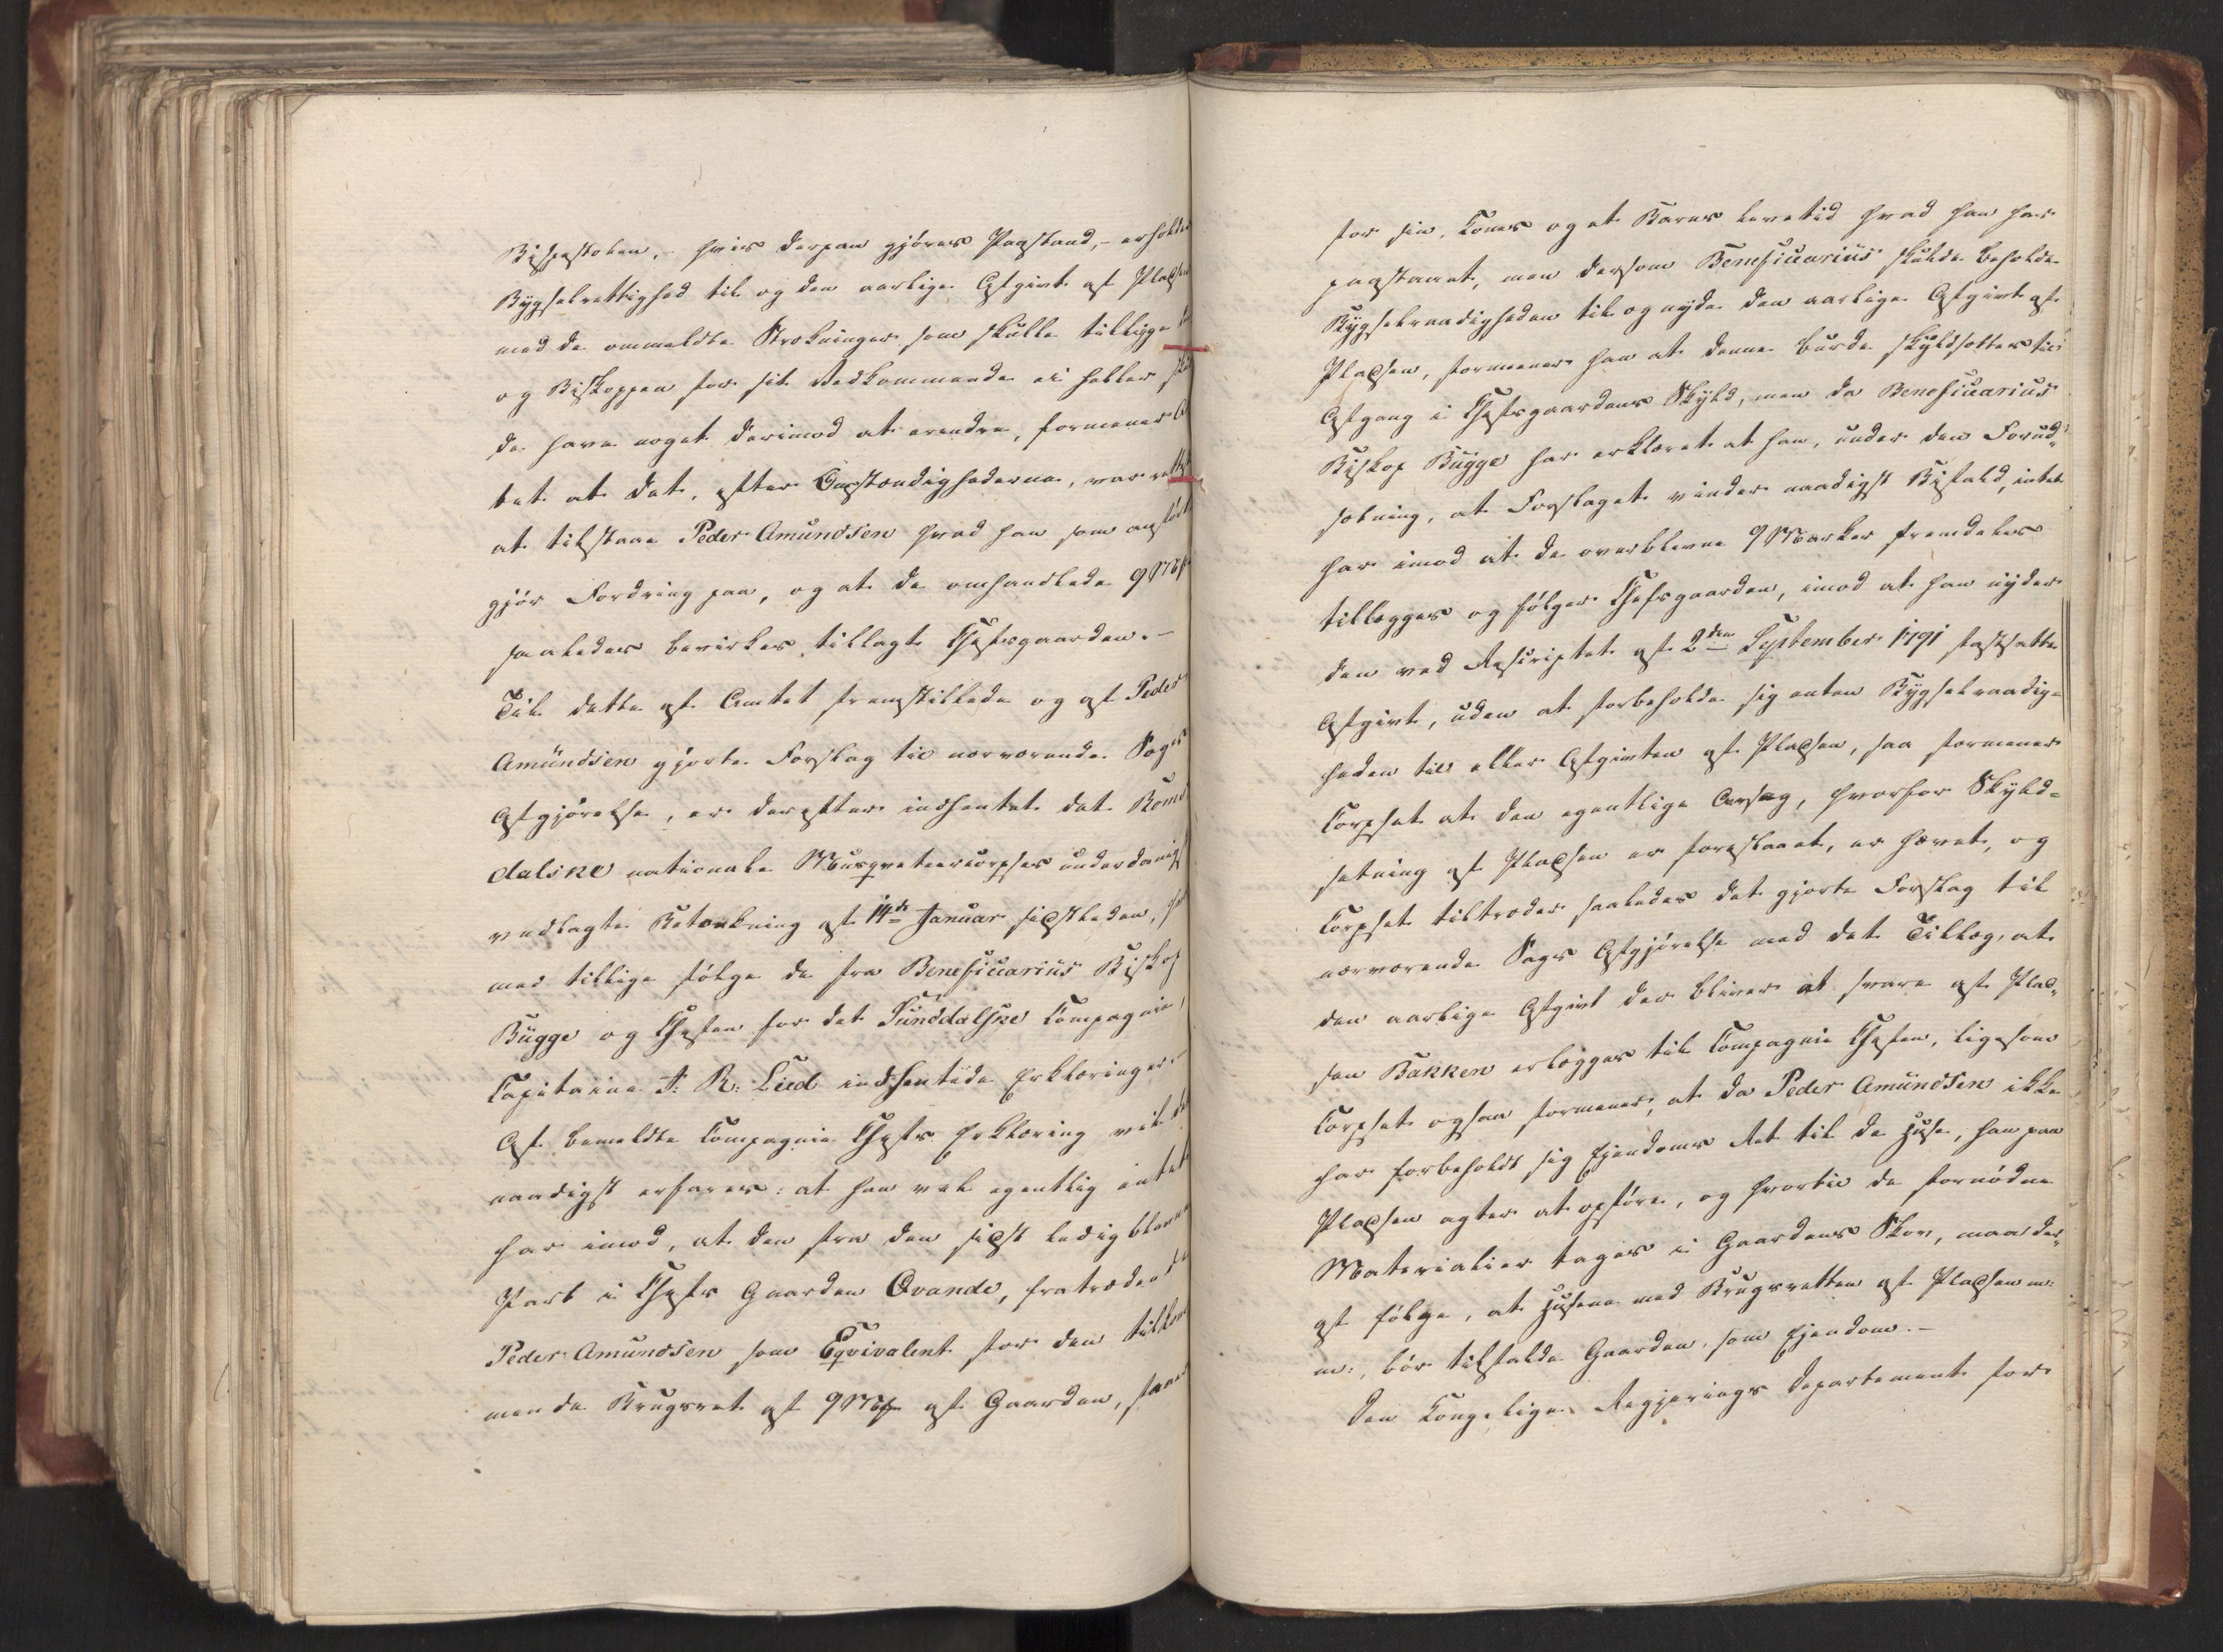 Bispestolen, hvis derpaa gjøres Paastand, – erholder
Bygselrettighed til og den aarlige Afgivt af Pladsen
med de ommeldte Strækninger som skulle tillægges
og Biskoppen for sit Vedkommende ei heller skal
de have noget derimod at erindre, formener
tet at det, efter Omstændighederne, var rettest
at tilstaae Peder Amundsen hvad han som anført
gjør Fordring paa, og at de omhandlede 9 Mkr
saaledes bevirkes tillagt Chefsgaarden. –
Til dette af Amtet fremstillede og af Peder
Amundsen gjorte Forslag til nærværende Sags
Afgjørelse, er derefter indhentet det Roms
dalske nationale Musqueteercorpses underdanigst
vedlagte Betænkning af 14de Januar sidstleden,
med tillige følge de fra Beneficiarius Biskop
Bugge og Chefen for det Sunddalske Compagnie,
Capitaine J: R: Lied indhentede Erklæringer. –
Af bemeldte Compagnie Chefs Erklæring vil
naadigst erfares: at han vel egentlig intet
har imod, at den fra den sidst ledigblevne
Part i Chefs Gaarden Qvande, fratrædende
Peder Amundsen som Eqvivalent for den tilkom
mende Brugsret af 9 Mkr af Gaarden, faaer
for sin, Kones og et Barns Levetid hvad han har
paastaaet, men dersom Beneficiarius skulde beholde
Bygselraadigheden til og nyde den aarlige Afgivt af
Pladsen, formener han at denne burde skyldsættes til
Afgang i Chefsgaardens Skyld, men da Beneficiarius
Biskop Bugge har erklæret at han, under den Forud„
sætning, at Forslaget vinder naadigst Bifald, intet
har imod at de overblevne 9 Marker fremdeles
tillægges og følger Chefsgaarden, imod at han nyder
den ved Rescriptet af 2den September 1791 fastsatte
Afgivt, uden at forbeholde sig enten Bygselraadig=
heden til eller Afgivten af Pladsen, saa formener
Corpset at den egentlige Aarsag, hvorfor Skyld=
sætning af Pladsen er foreslaaet, er hævet, og
Corpset tiltræder saaledes det gjorte Forslag til
nærværende Sags Afgjørelse med det Tillæg, at
den aarlige Afgivt der bliver at svare af Plad„
sen Bakken erlægges til Compagnie Chefen, ligesom
Corpset ogsaa formener, at da Peder Amundsen ikke
har forbeholdt sig Ejendoms Ret til de Huse, han paa
Pladsen agter at opføre, og hvortil de fornødne
Materialier tages i Gaardens Skov, maa der„
af følge, at Husene med Brugsretten af Pladsen m:
m:, bør tilfalde Gaarden, som Ejendom. –
Den Kongelige Regjerings Departement for